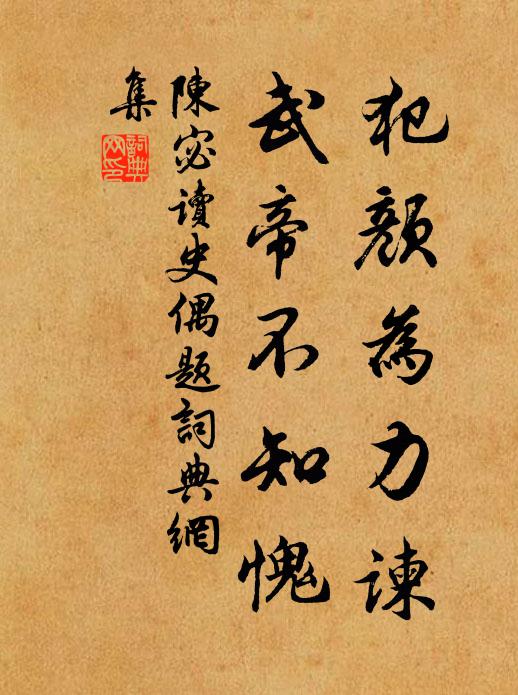 犯顏為力諫
武帝不知愧
陳宓讀史偶題詞典網
集
詞典